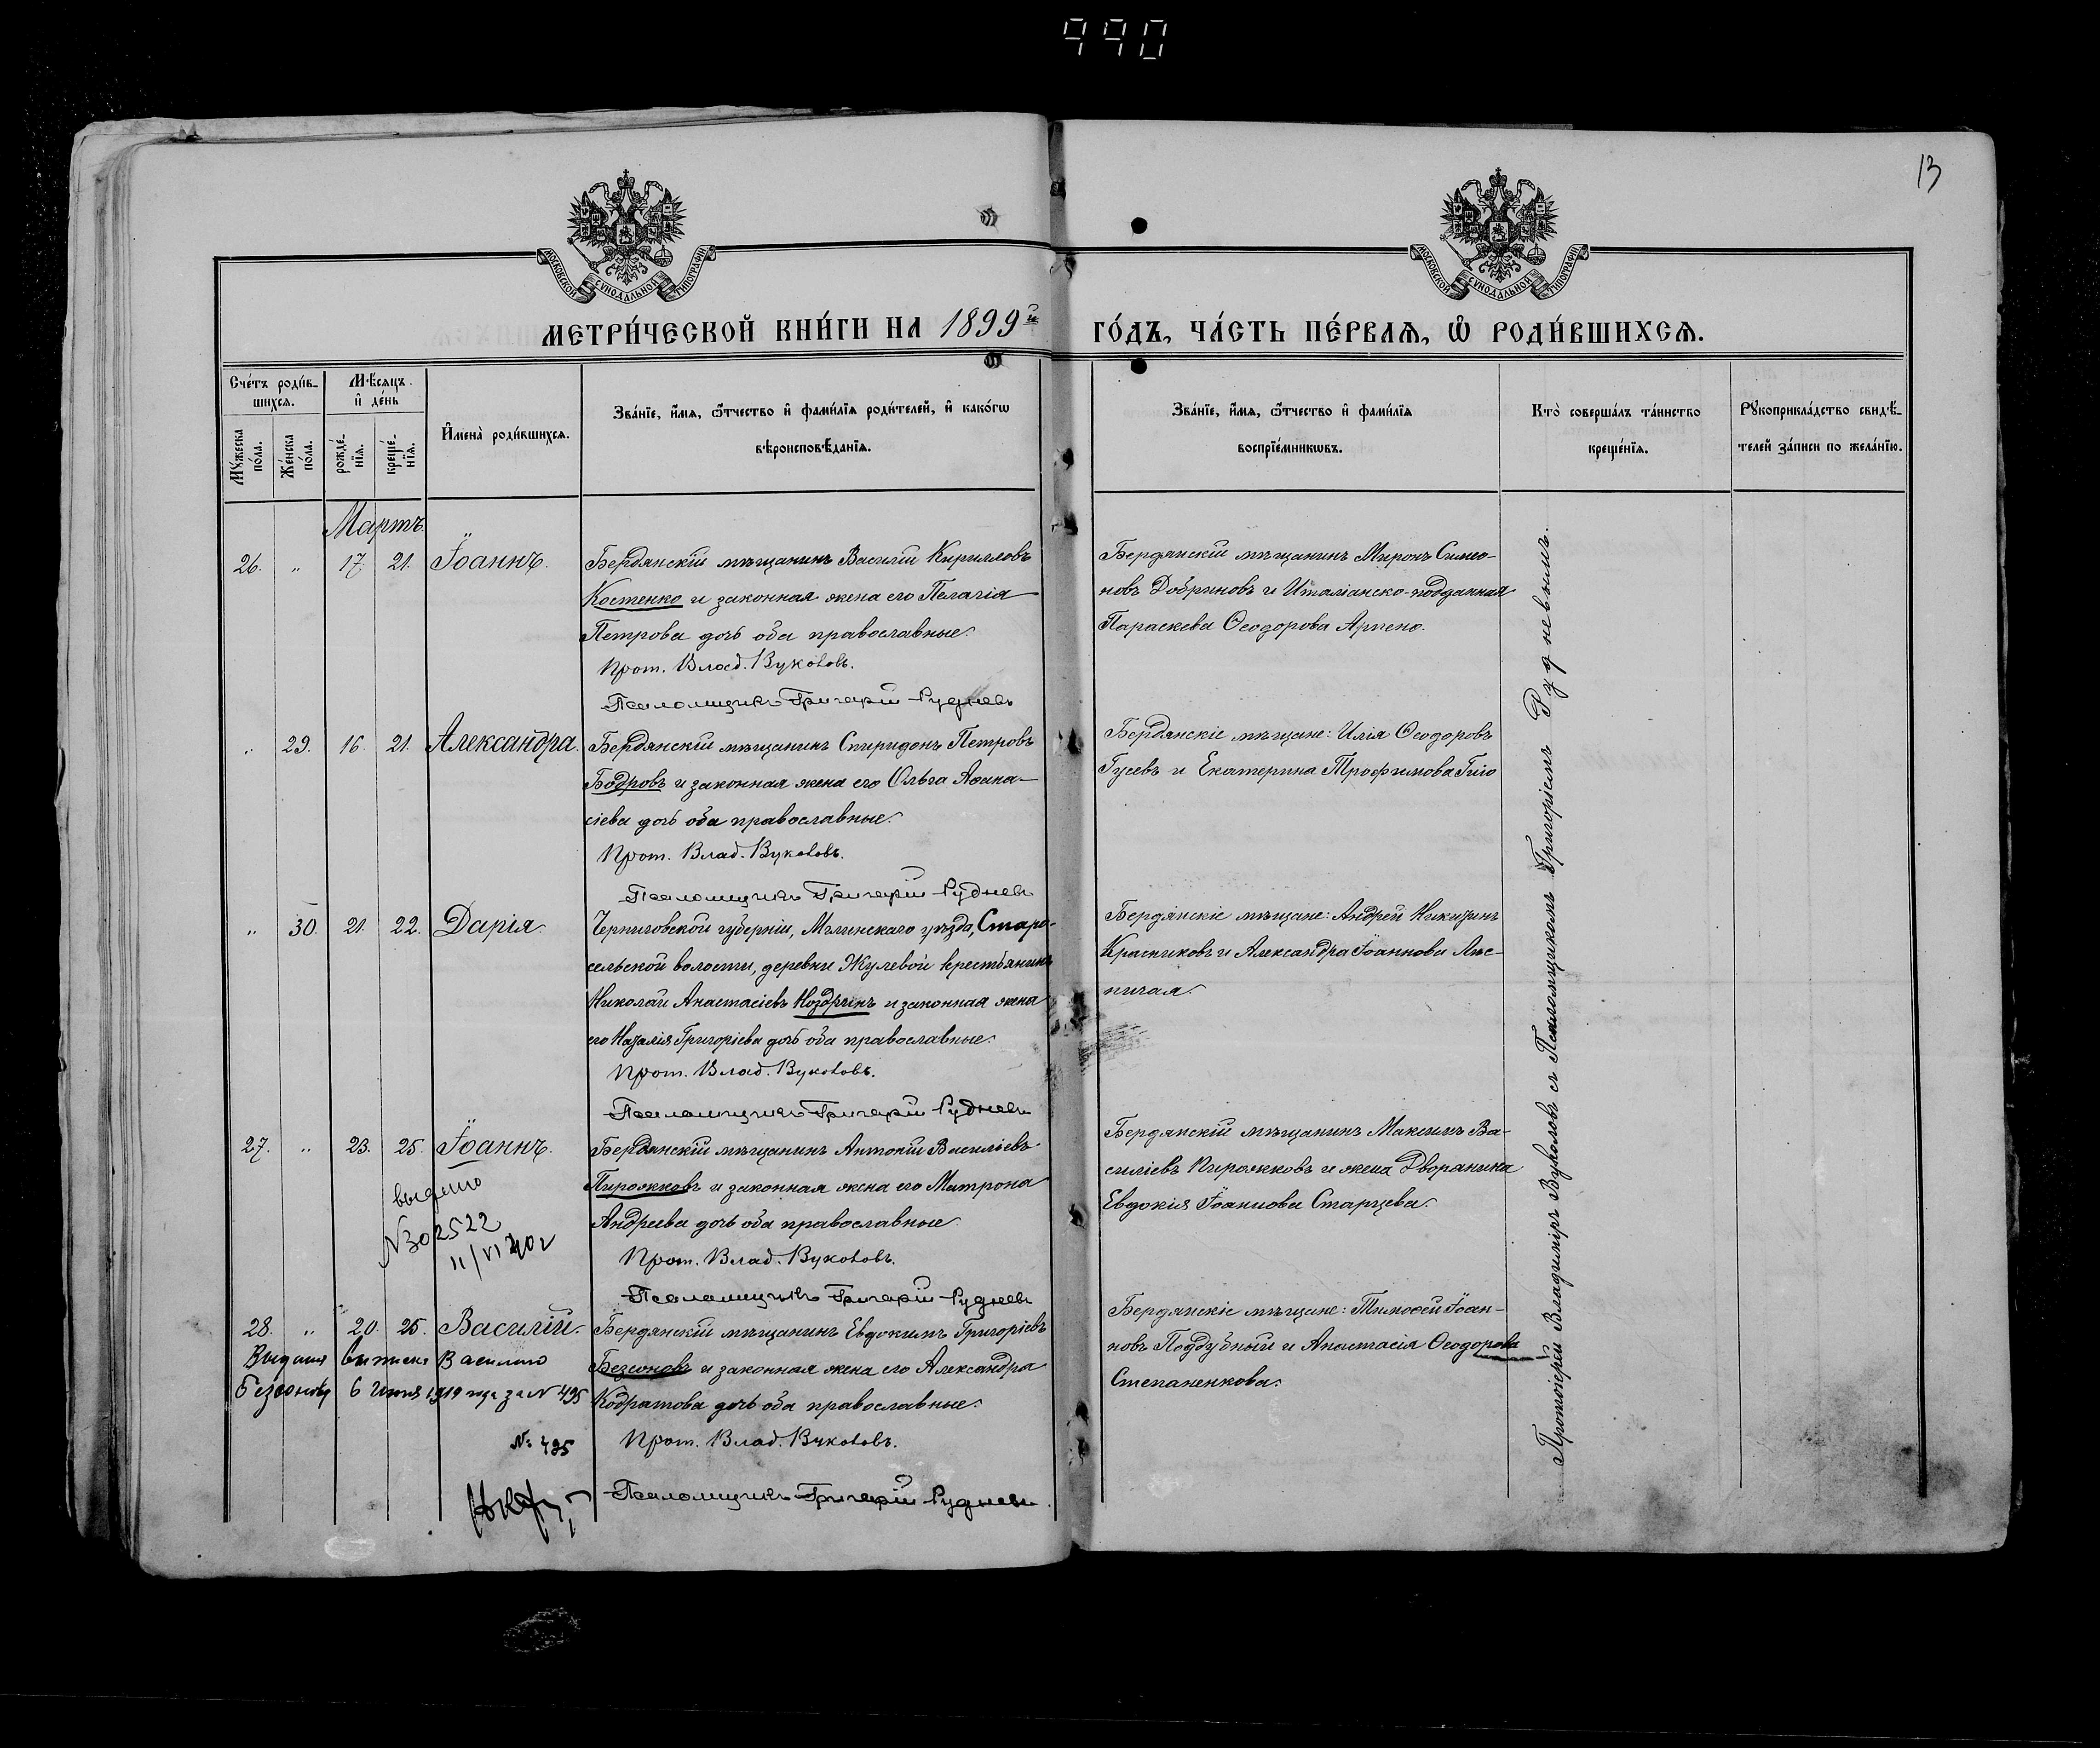 990
13
МОСКОВСКОЙ СѴНОДАЛЬНОЙ ТИПОГРАФІИ
МОСКОВСКОЙ СѴНОДАЛЬНОЙ ТИПОГРАФІИ
МЕТРИ́ЧЕСКОЙ КНИ́ГИ НА 1899й ГО́ДЪ, ЧА́СТЬ ПЕ́РВАѦ, Ѿ РОДИ́ВШИХСѦ.
Сче́тъ роди́в-
шихсѧ.
Мѣ́сѧцъ
и҆ де́нь
Мꙋ́жеска
по́ла.
Же́нска
по́ла.
рожде́-
нїѧ.
креще́-
нїѧ.
И҆мена̀ роди́вшихсѧ.
Зва́нїе, и҆́мѧ, ѻ҆́тчество и҆ фами́лїѧ роди́телей, и҆ како́гѡ
вѣроисповѣ́данїѧ.
Зва́нїе, и҆́мѧ, ѻ҆́тчество и҆ фами́лїѧ
воспрїе́мникѡвъ.
Кто̀ соверша́лъ та́инство
креще́нїѧ.
Рꙋкоприкла́дство свидѣ́-
телей за́писи по жела́нїю.
Мартъ.
26. „ 17. 21. Іоаннъ.
Бердянскій мѣщанинъ Василій Кирилловъ
Костенко и законная жена его Пелагія
Петрова дочь оба православные.
Прот. Влад. Вуколовъ.
Псаломщикъ Григорій Рудневъ
Бердянскій мѣщанинъ Миронъ Симео-
новъ Добриновъ и Италіанско-подданная
Параскева Ѳеодорова Арпено.
„ 29. 16. 21. Александра.
Бердянскій мѣщанинъ Спиридонъ Петровъ
Бодровъ и законная жена его Ольга Аѳана-
сіева дочь оба православные.
Прот. Влад. Вуколовъ.
Псаломщикъ Григорій Рудневъ
Бердянскіе мѣщане: Илія Ѳеодоровъ
Гусевъ и Екатерина Трофимова
„ 30. 21. 22. Дарія.
Черниговской губерніи, Мглинскаго уѣзда, Старо-
сельской волости, деревни Жулевой крестьянинъ
Николай Анастасіевъ Ноздринъ и законная жена
его Наталія Григоріева дочь оба православные.
Прот. Влад. Вуколовъ.
Псаломщикъ Григорій Рудневъ
Бердянскіе мѣщане: Андрей Никитинъ
Красниковъ и Александра Іоаннова Лѣс-
ничая.
27. „ 23. 25. Іоаннъ.
Бердянскій мѣщанинъ Антоній Василіевъ
Пирожковъ и законная жена его Матрона
Андреева дочь оба православные
Прот. Влад. Вуколовъ.
Псаломщикъ Григорій Рудневъ
выдано
№302522
Бердянскій мѣщанинъ Максимъ Ва-
силіевъ Пирожковъ и жена Дворянина
Евдокія Іоаннова Старцева.
28. „ 20. 25. Василій.
Бердянскій мѣщанинъ Евдокимъ Григоріевъ
Безсоновъ и законная жена его Александра
Кодратова дочь оба православные.
Прот. Влад. Вуколовъ.
Псаломщикъ Григорій Рудневъ.
Выдана выписка Василию
Безсонову 6 1919 года за № 495
№ 495
Бердянскіе мѣщане: Тимоѳей Іоан-
новъ Поддубный и Анастасія Ѳеодорова
Степаненкова.
Протоіерей Владиміръ Вуколовъ съ Псаломщикомъ Григоріемъ Рудневымъ.